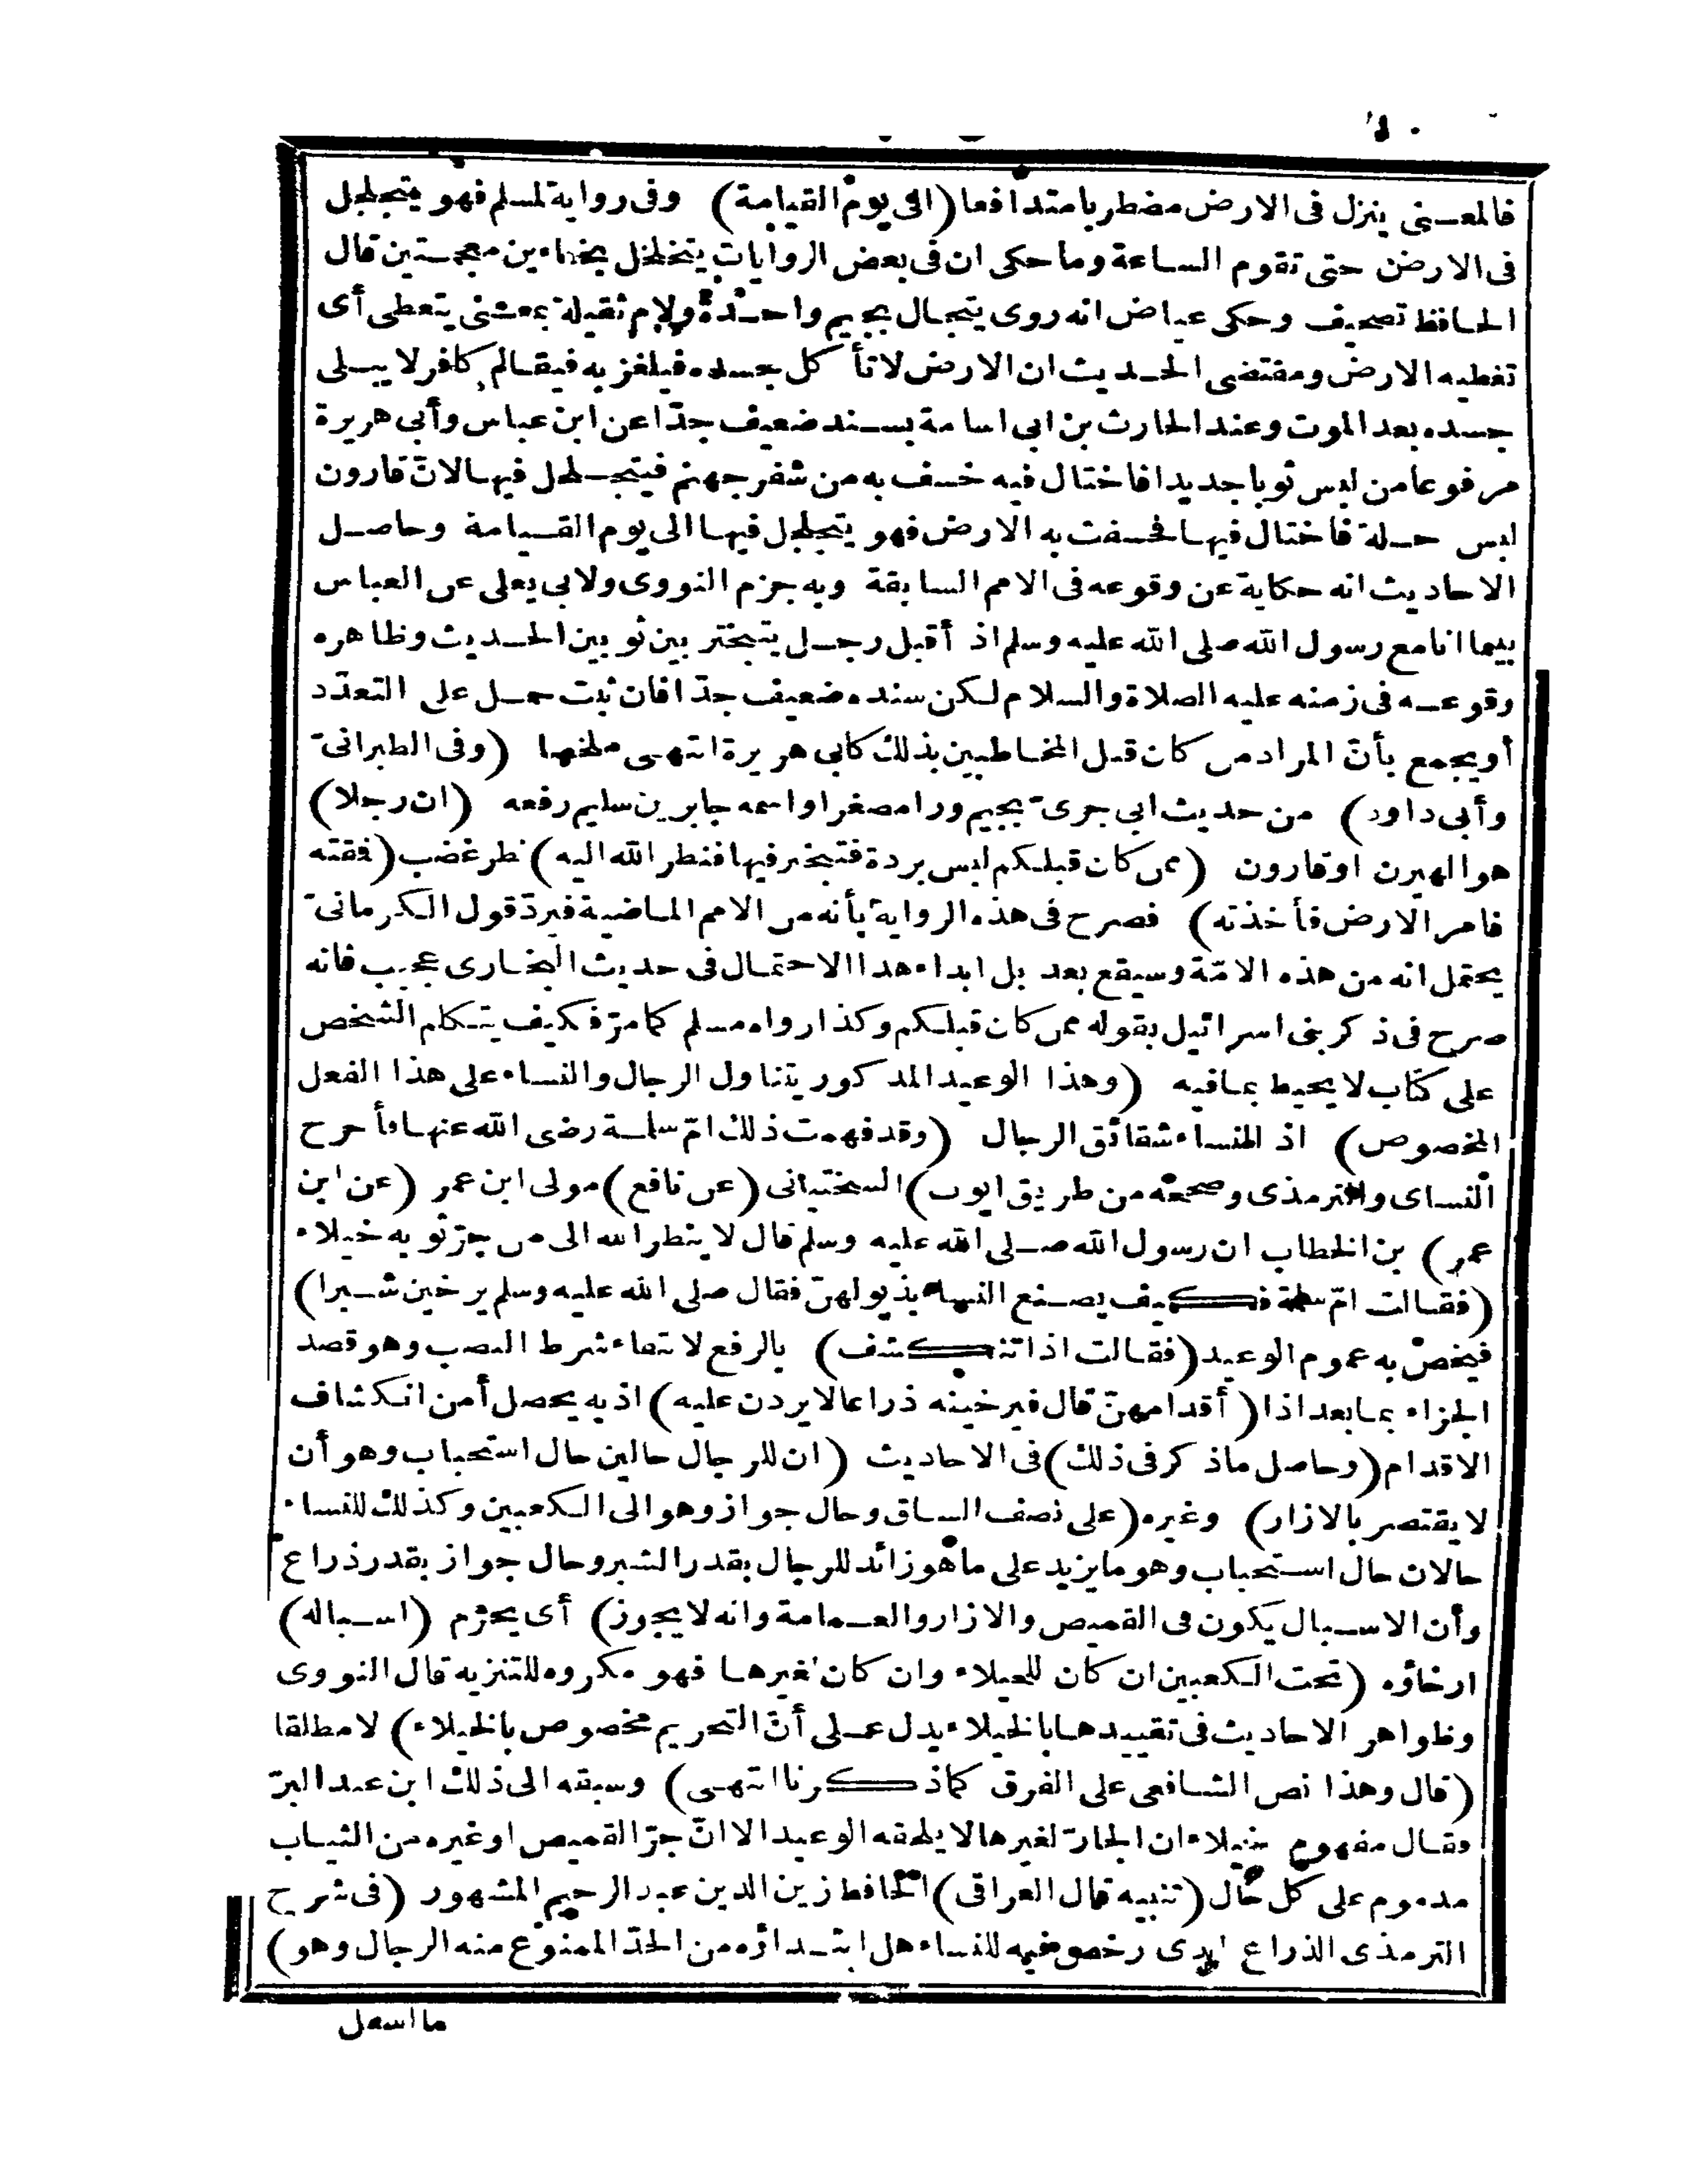 فالمعنى ينزل فى الارض مضطربا متدافعا (الى يوم القيامة) وفى رواية لمسلم فهو يتجلجل
فى الارض حتى تقوم الساعة وما حكى ان فى بعض الروايات يتخلخل بخاءين معجمتين قال
الحافظ تصحيف وحكى عياض انه روى يتجال بجيم واحدة ولام ثقيلة بمعنى يتغطى أى
تغطيه الارض ومقتضى الحديث ان الارض لا تأكل جسده فيلغز به فيقال لم كافر لا يبلى
جسده بعد الموت وعند الحارث بن ابى اسامة بسند ضعيف جدّا عن ابن عباس وأبى هريرة
مرفوعا من لبس ثوبا جديدا فاختال فيه خسف به من شفر جهنم فيتجلجل فيها لانّ قارون
لبس حلة فاختال فيها فخسفت به الارض فهو يتجلجل فيها الى يوم القيامة وحاصل
الاحاديث انه حكاية عن وقوعه فى الامم السابقة وبه جزم النووى ولابى يعلى عن العباس
بينما انا مع رسول الله صلى الله عليه وسلم اذ أقبل رجل يتبختر بين ثوبين الحديث وظاهره
وقوعه فى زمنه عليه الصلاة والسلام لكن سنده ضعيف جدّا فان ثبت حمل على التعدّد
أو يجمع بأنّ المراد من كان قبل المخاطبين بذلك كابى هريرة انتهى ملخصا (وفى الطبرانىّ
وأبى داود) من حديث ابى جرىّ بجيم ورا مصغرا واسمه جابر بن سليم رفعه (ان رجلا)
هو الهيرن او قارون (ممن كان قبلكم لبس بردة فتبختر فيها فنظر الله اليه) نظر غضب (فمقته
فامر الارض فأخذته) فصرح فى هذه الرواية بأنه من الامم الماضية فيردّ قول الكرمانىّ
يحتمل انه من هذه الامّة وسيقع بعد بل ابداء هذا الاحتمال فى حديث البخارى عجيب فانه
صرح فى ذكر بنى اسرائيل بقوله ممن كان قبلكم وكذا رواه مسلم كما مرّ فكيف يتكلم الشخص
على كتاب لا يحيط بما فيه (وهذا الوعيد المذكور يتناول الرجال والنساء على هذا الفعل
المخصوص) اذ النساء شقائق الرجال (وقد فهمت ذلك امّ سلمة رضى الله عنها فأخرج
النساى والترمذى وصححه من طريق ايوب) السختيانى (عن نافع) مولى ابن عمر (عن ابن
عمر) بن الخطاب ان رسول الله صلى الله عليه وسلم قال لا ينظر الله الى من جرّ ثوبه خيلاء
(فقالت امّ سلمة فكيف يصنع النساء بذيولهنّ فقال صلى الله عليه وسلم يرخين شبرا)
فيخصّ به عموم الوعيد (فقالت اذا تنكشف) بالرفع لانتفاء شرط النصب وهو قصد
الجزاء بما بعد اذا (أقدامهنّ قال فيرخينه ذراعا لا يردن عليه) اذ به يحصل أمن انكشاف
الاقدام (وحاصل ما ذكر فى ذلك) فى الاحاديث (ان للرجال حالين حال استحباب وهو أن
لا يقتصر بالازار) وغيره (على نصف الساق وحال جواز وهو الى الكعبين وكذلك للنساء
حالان حال استحباب وهو ما يزيد على ما هو زائد للرجال بقدر الشبر وحال جواز بقدر ذراع
وأن الاسبال يكون فى القميص والازار والعمامة وانه لا يجوز) أى يحرّم (اسباله)
ارخاؤه (تحت الكعبين ان كان للخيلاء وان كان لغيرها فهو مكروه للتنزيه قال النووى
وظواهر الاحاديث فى تقييدها بالخيلاء يدل على أنّ التحريم مخصوص بالخيلاء) لا مطلقا
(قال وهذا نص الشافعى على الفرق كما ذكرنا انتهى) وسبقه الى ذلك ابن عبد البرّ
فقال مفهوم خيلاء ان الجارّ لغيرها لا يلحقه الوعيد الا انّ جرّ القميص او غيره من الثياب
مذموم على كل حال (تنبيه قال العراقى) الحافظ زين الدين عبد الرحيم المشهور (فى شرح
الترمذى الذراع الذى رخص فيه للنساء هل ابتداؤه من الحدّ الممنوع منه الرجال وهو)
ما اسفل